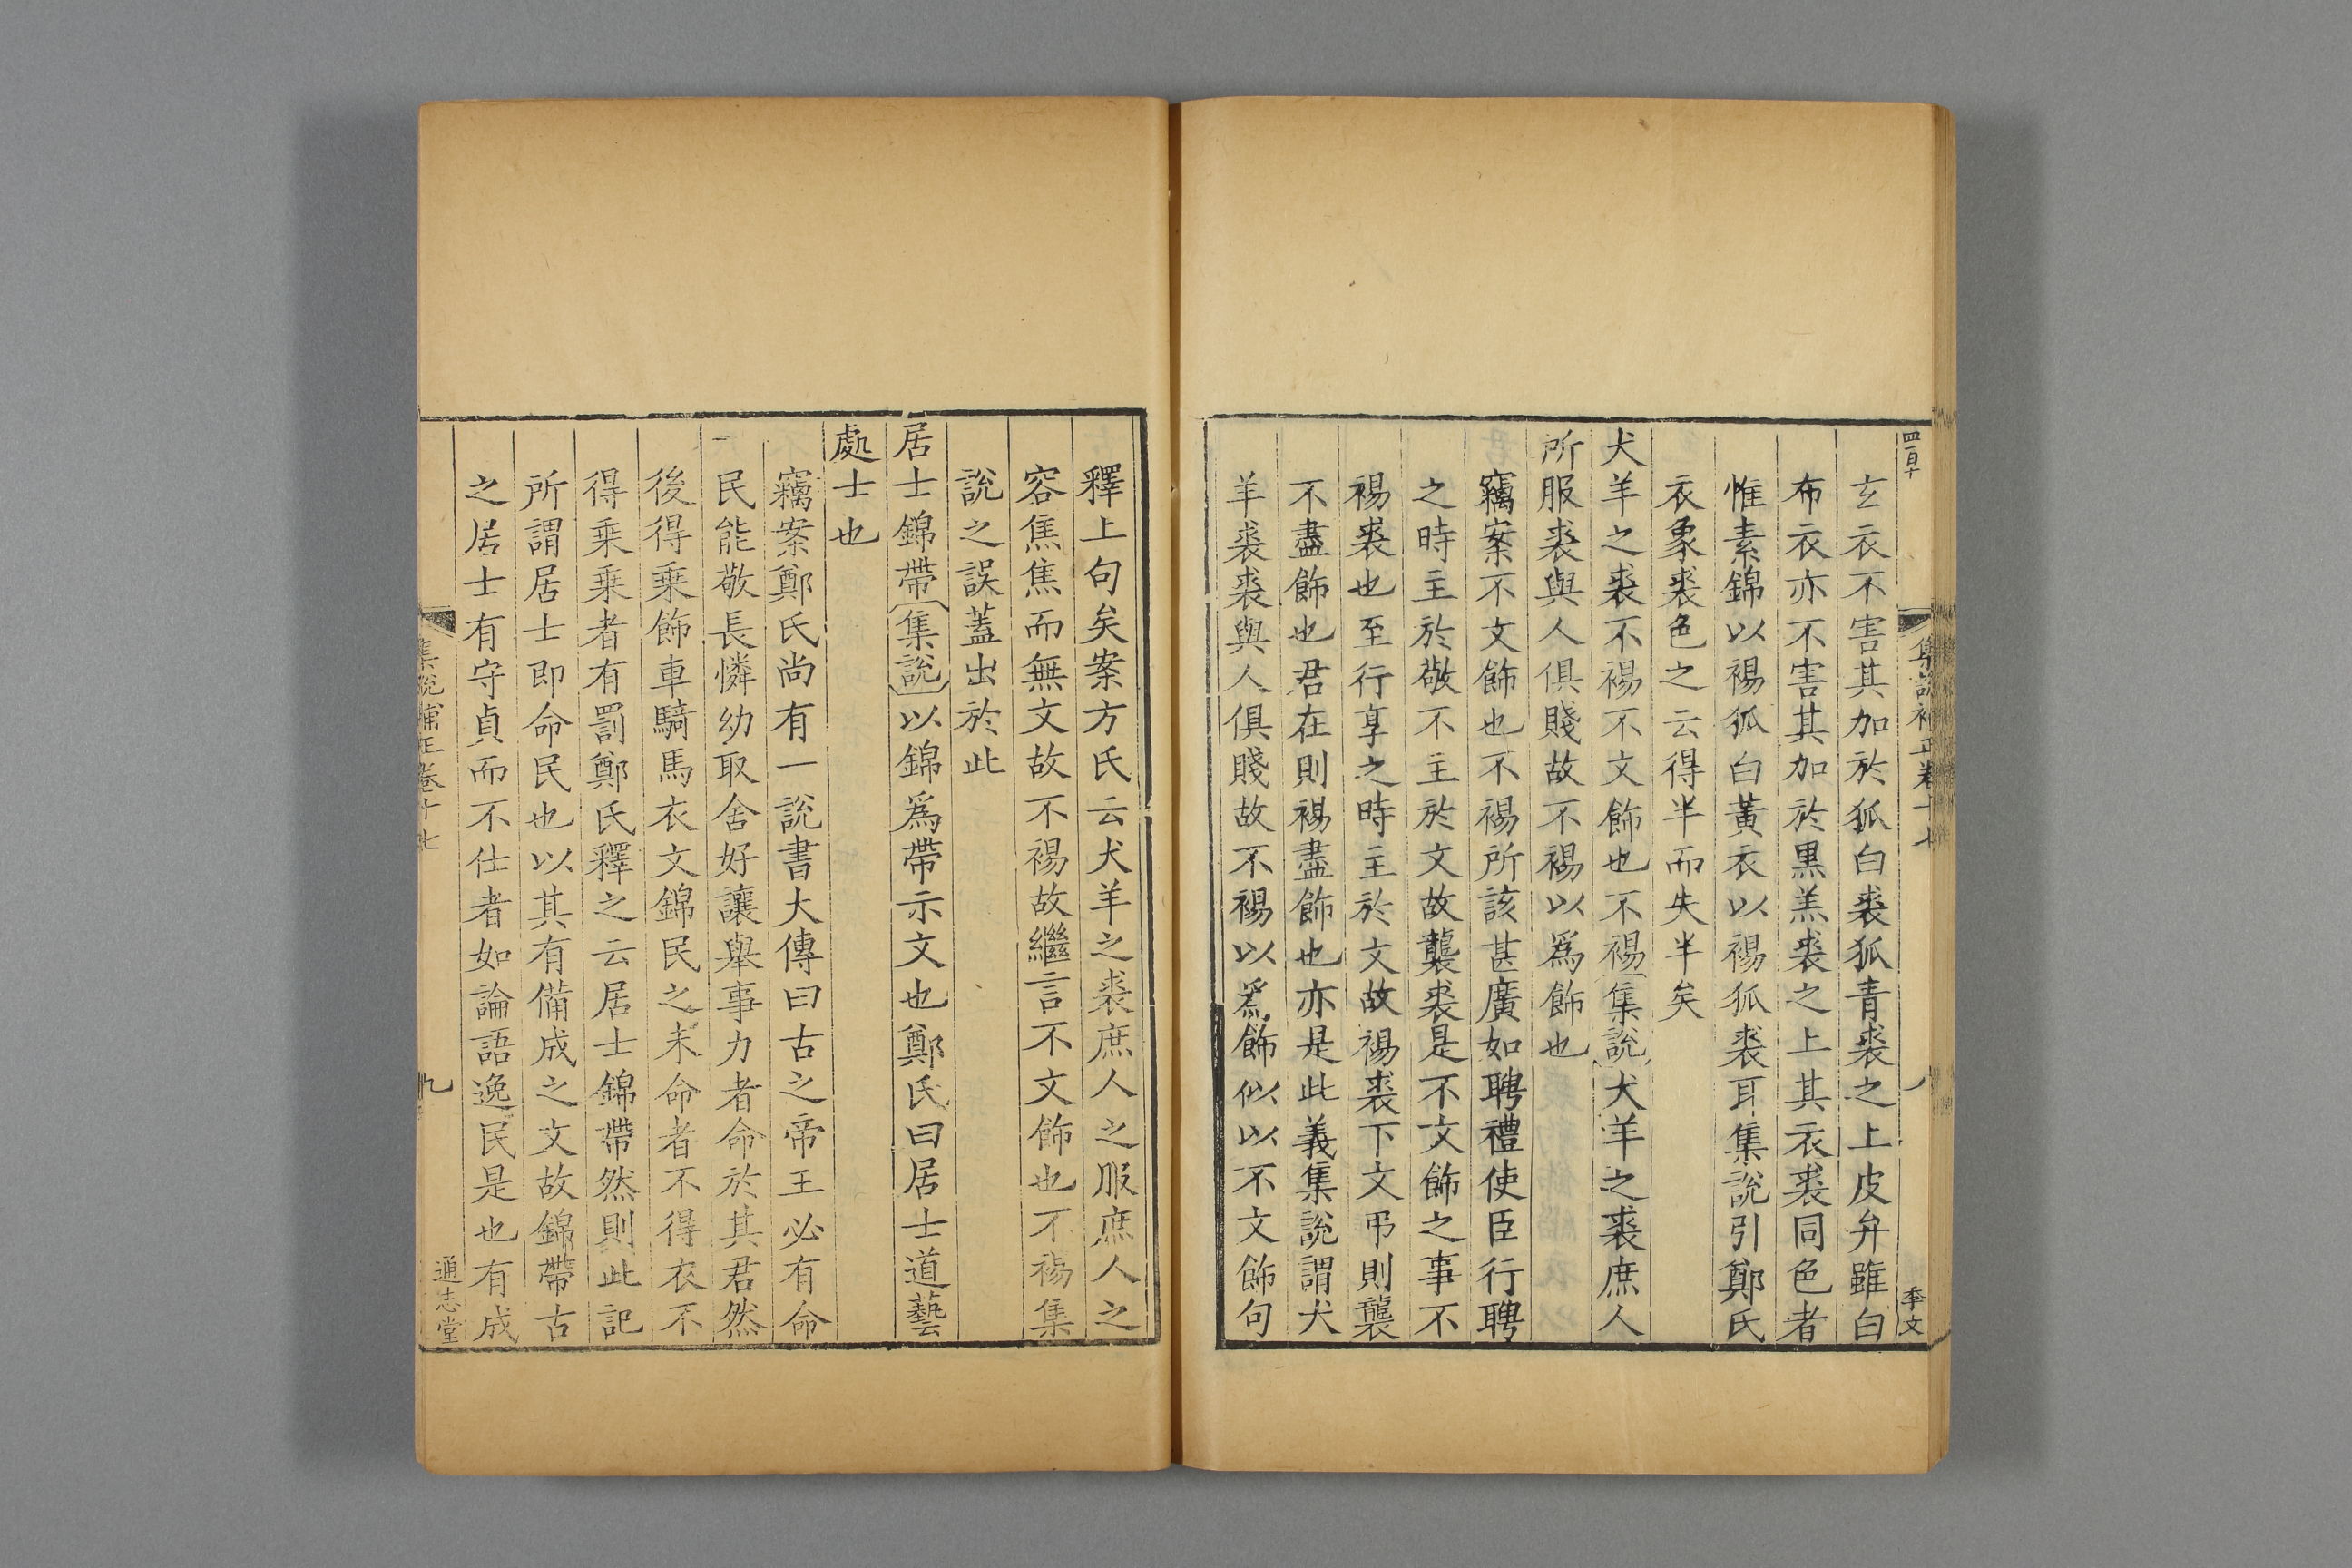 四百十
集說補正卷十七
季文
玄衣不害其加於狐白裘狐青裘之上皮弁雖白
布衣亦不害其加於黒羔裘之上其衣裘同色者
惟素錦以裼狐白黃衣以裼狐裘耳集說引鄭氏
衣象裘色之云得半而失半矣
犬羊之裘不裼不文飾也不裼集說犬羊之裘庶人
所服裘與人俱賤故不裼以爲飾也
竊案不文飾也不裼所該甚廣如聘禮使臣行聘
之時主於敬不主於文故襲裘是不文飾之事不
裼裘也至行享之時主於文故裼裘下文弔則襲
不盡飾也君在則裼盡飾也亦是此義集說謂犬
羊裘裘與人俱賤故不裼以爲飾似以不文飾句
釋上句矣案方氏云犬羊之裘庶人之服庶人之
容焦焦而無文故不裼故繼言不文飾也不裼集
說之誤蓋出於此
居士錦帶集說以錦爲帶示文也鄭氏曰居士道藝
處士也
竊案鄭氏尚有一說書大傳曰古之帝王必有命
民能敬長憐幼取舍好讓舉事力者命於其君然
後得乗飾車騎馬衣文錦民之未命者不得衣不
得乗乗者有罰鄭氏釋之云居士錦帶然則此記
所謂居士即命民也以其有備成之文故錦帶古
之居士有守貞而不仕者如論語逸民是也有成
集說補正卷十七
九
通志堂